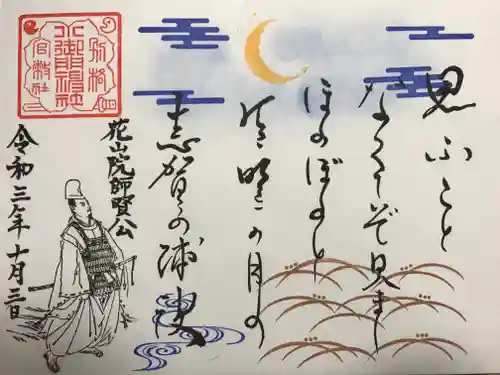 思ふこと
なくてぞ見まし
ほのぼのと
有明の月の
志賀の浦波
花山院師賢公
別格
小御門神社
官幣社
令和三年十月三日